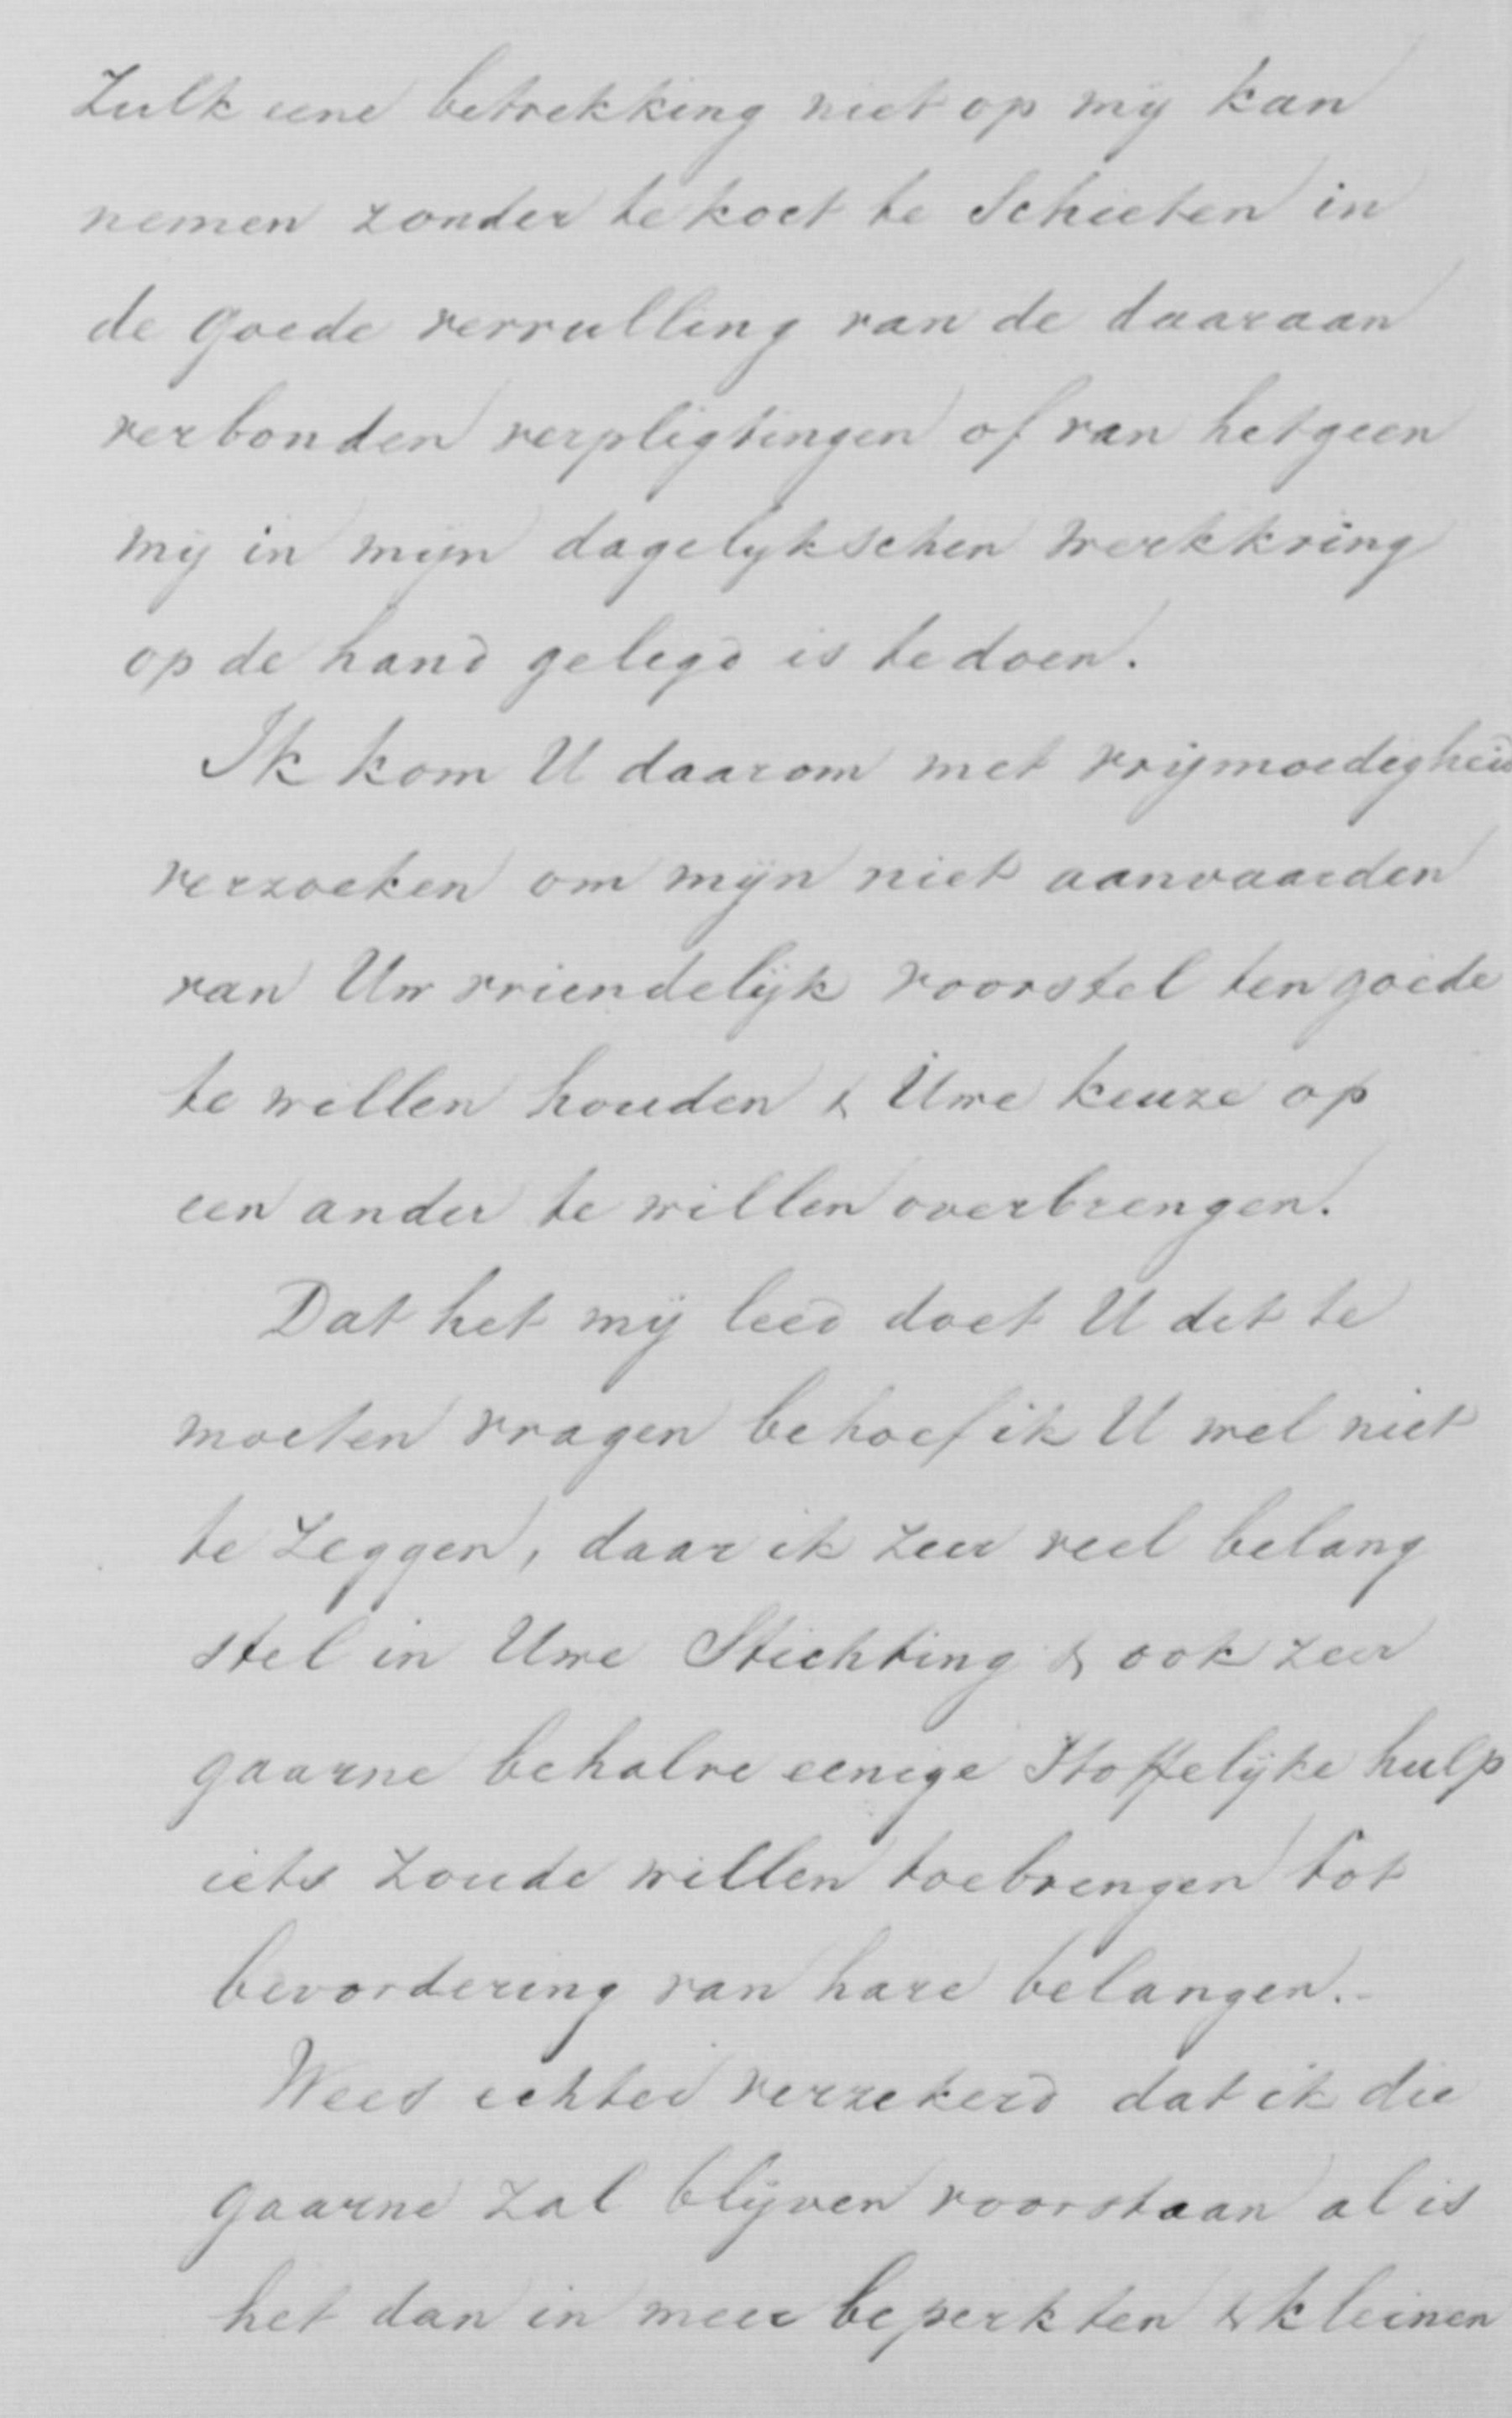 Zulk eene betrekking niet op mij kan
nemen zonder te kort te Schieten in
de goede vervulling van de daaraan
verbonden verpligtingen of van hetgeen
mij in mijn dagelijkschen werkkring
op de hand gelegd is te doen.
Ik kom U daarom met vrijmoedigheid
verzoeken om mijn niet aanvaarden
van Uw vriendelijk voorstel ten goede
te willen houden & Uwe keuze op
een ander te willen overbrengen.
Dat het mij leed doet U dit te
moeten vragen behoef ik U wel niet
te Zeggen, daar ik zeer veel belang
stel in Uwe Stichting & ook zeer
gaarne behalve eenige Stoffelijke hulp
iets zoude willen toebrengen tot
bevordering van hare belangen.-
Wees echter verzekerd dat ik die
gaarne zal blijven voorstaan al is
het dan in meer beperkten & kleinen